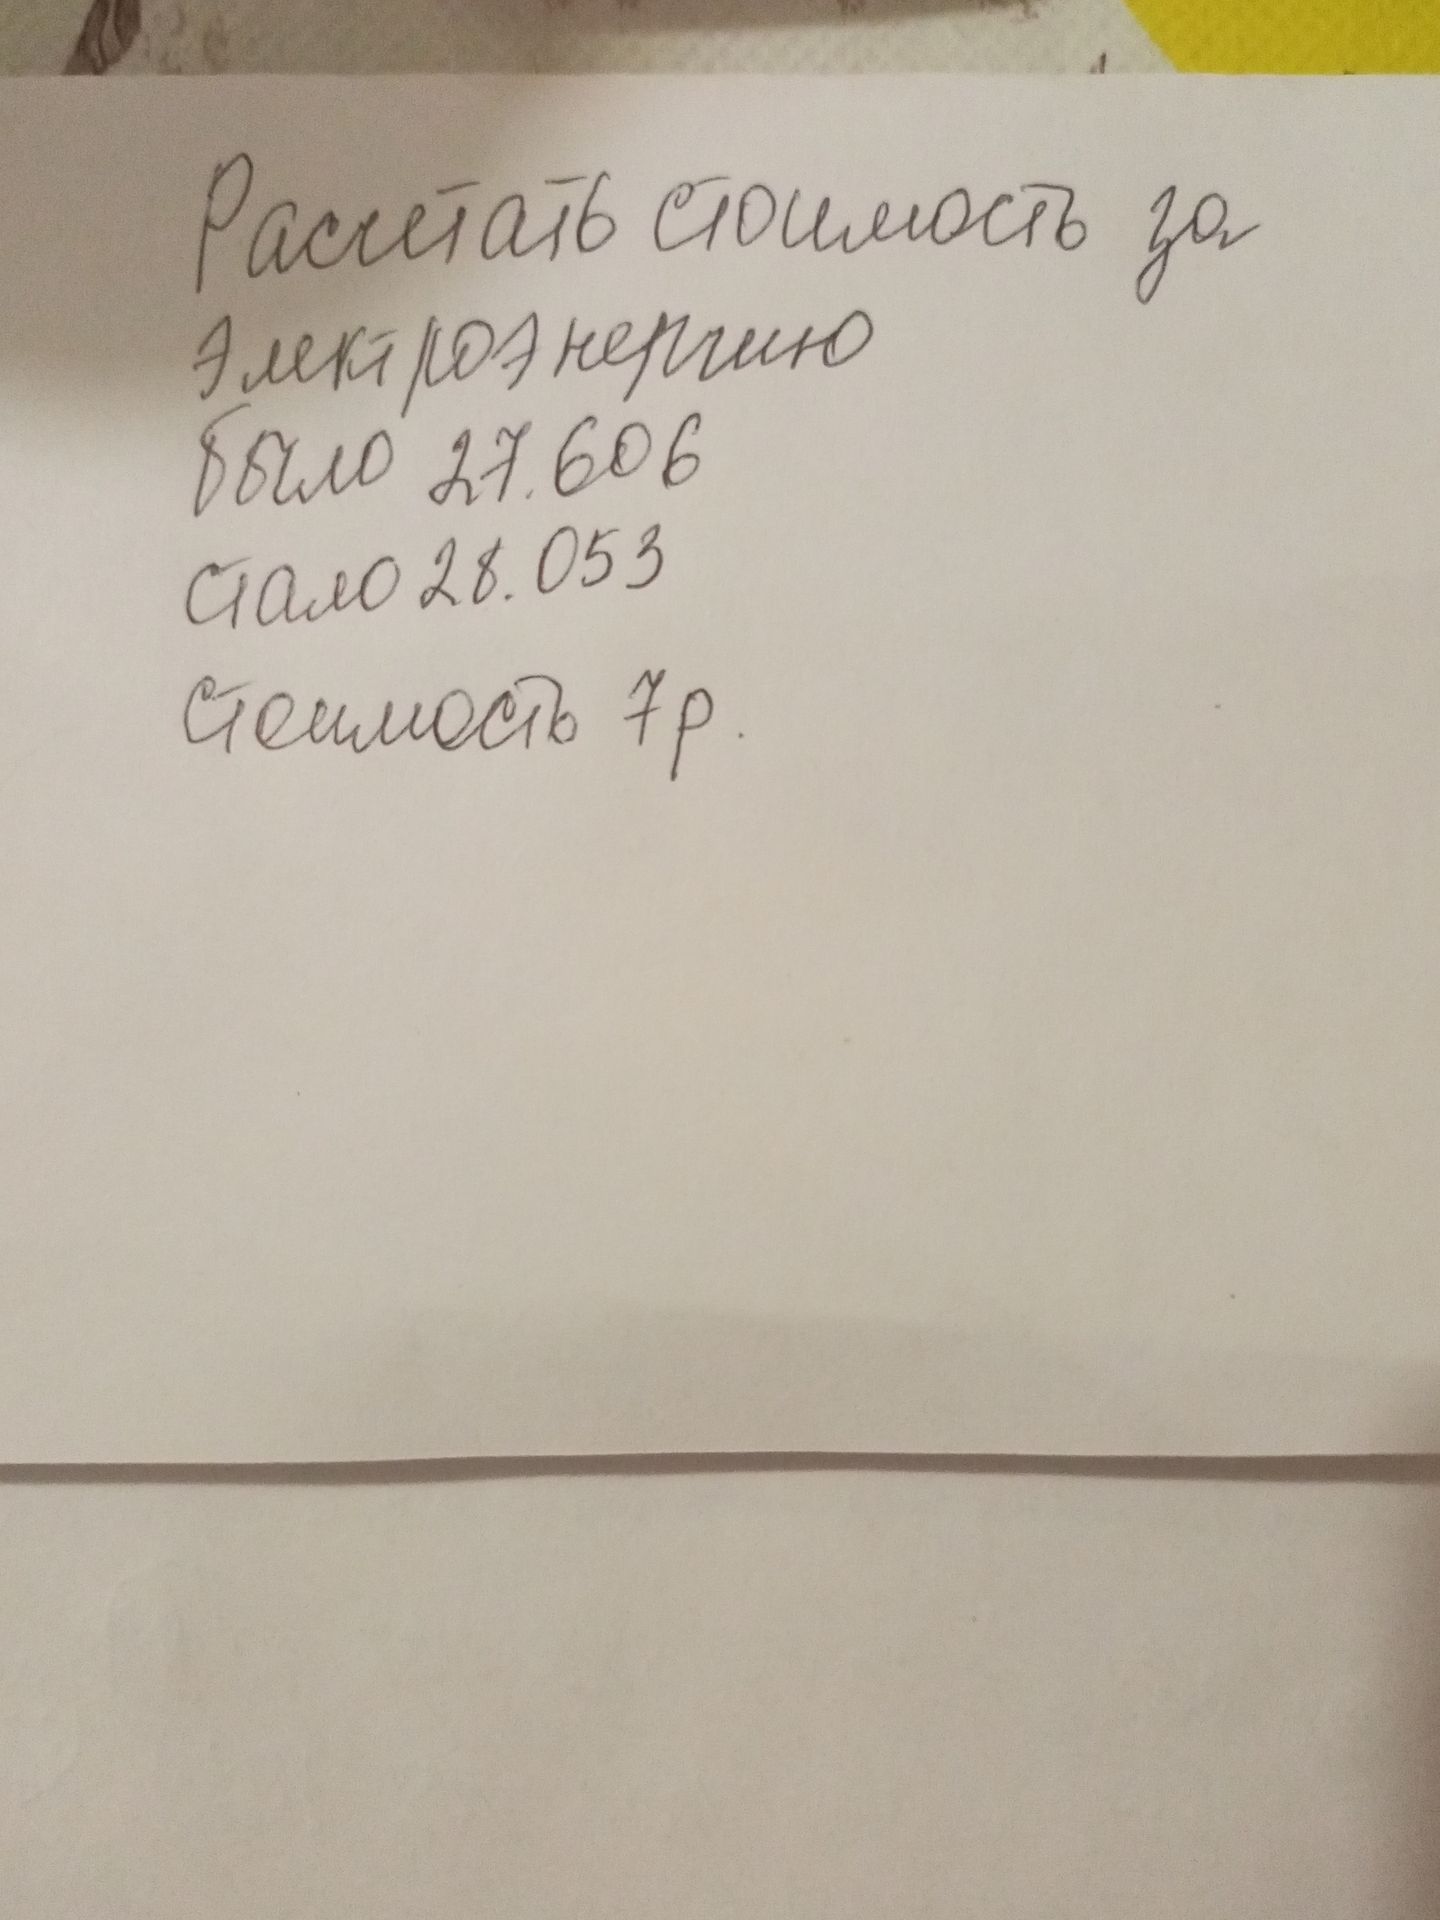 Расчетать стоимость за
электроэнергию
было 27.606
стало 28.053
стоимость 7р.